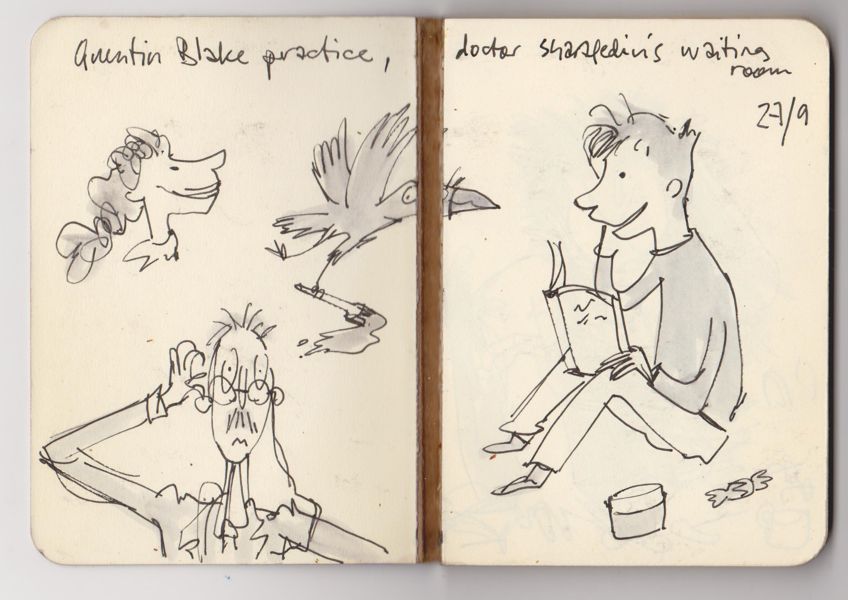 Quentin Blake practice,
doctor sharafedin's waiting
room
27/9